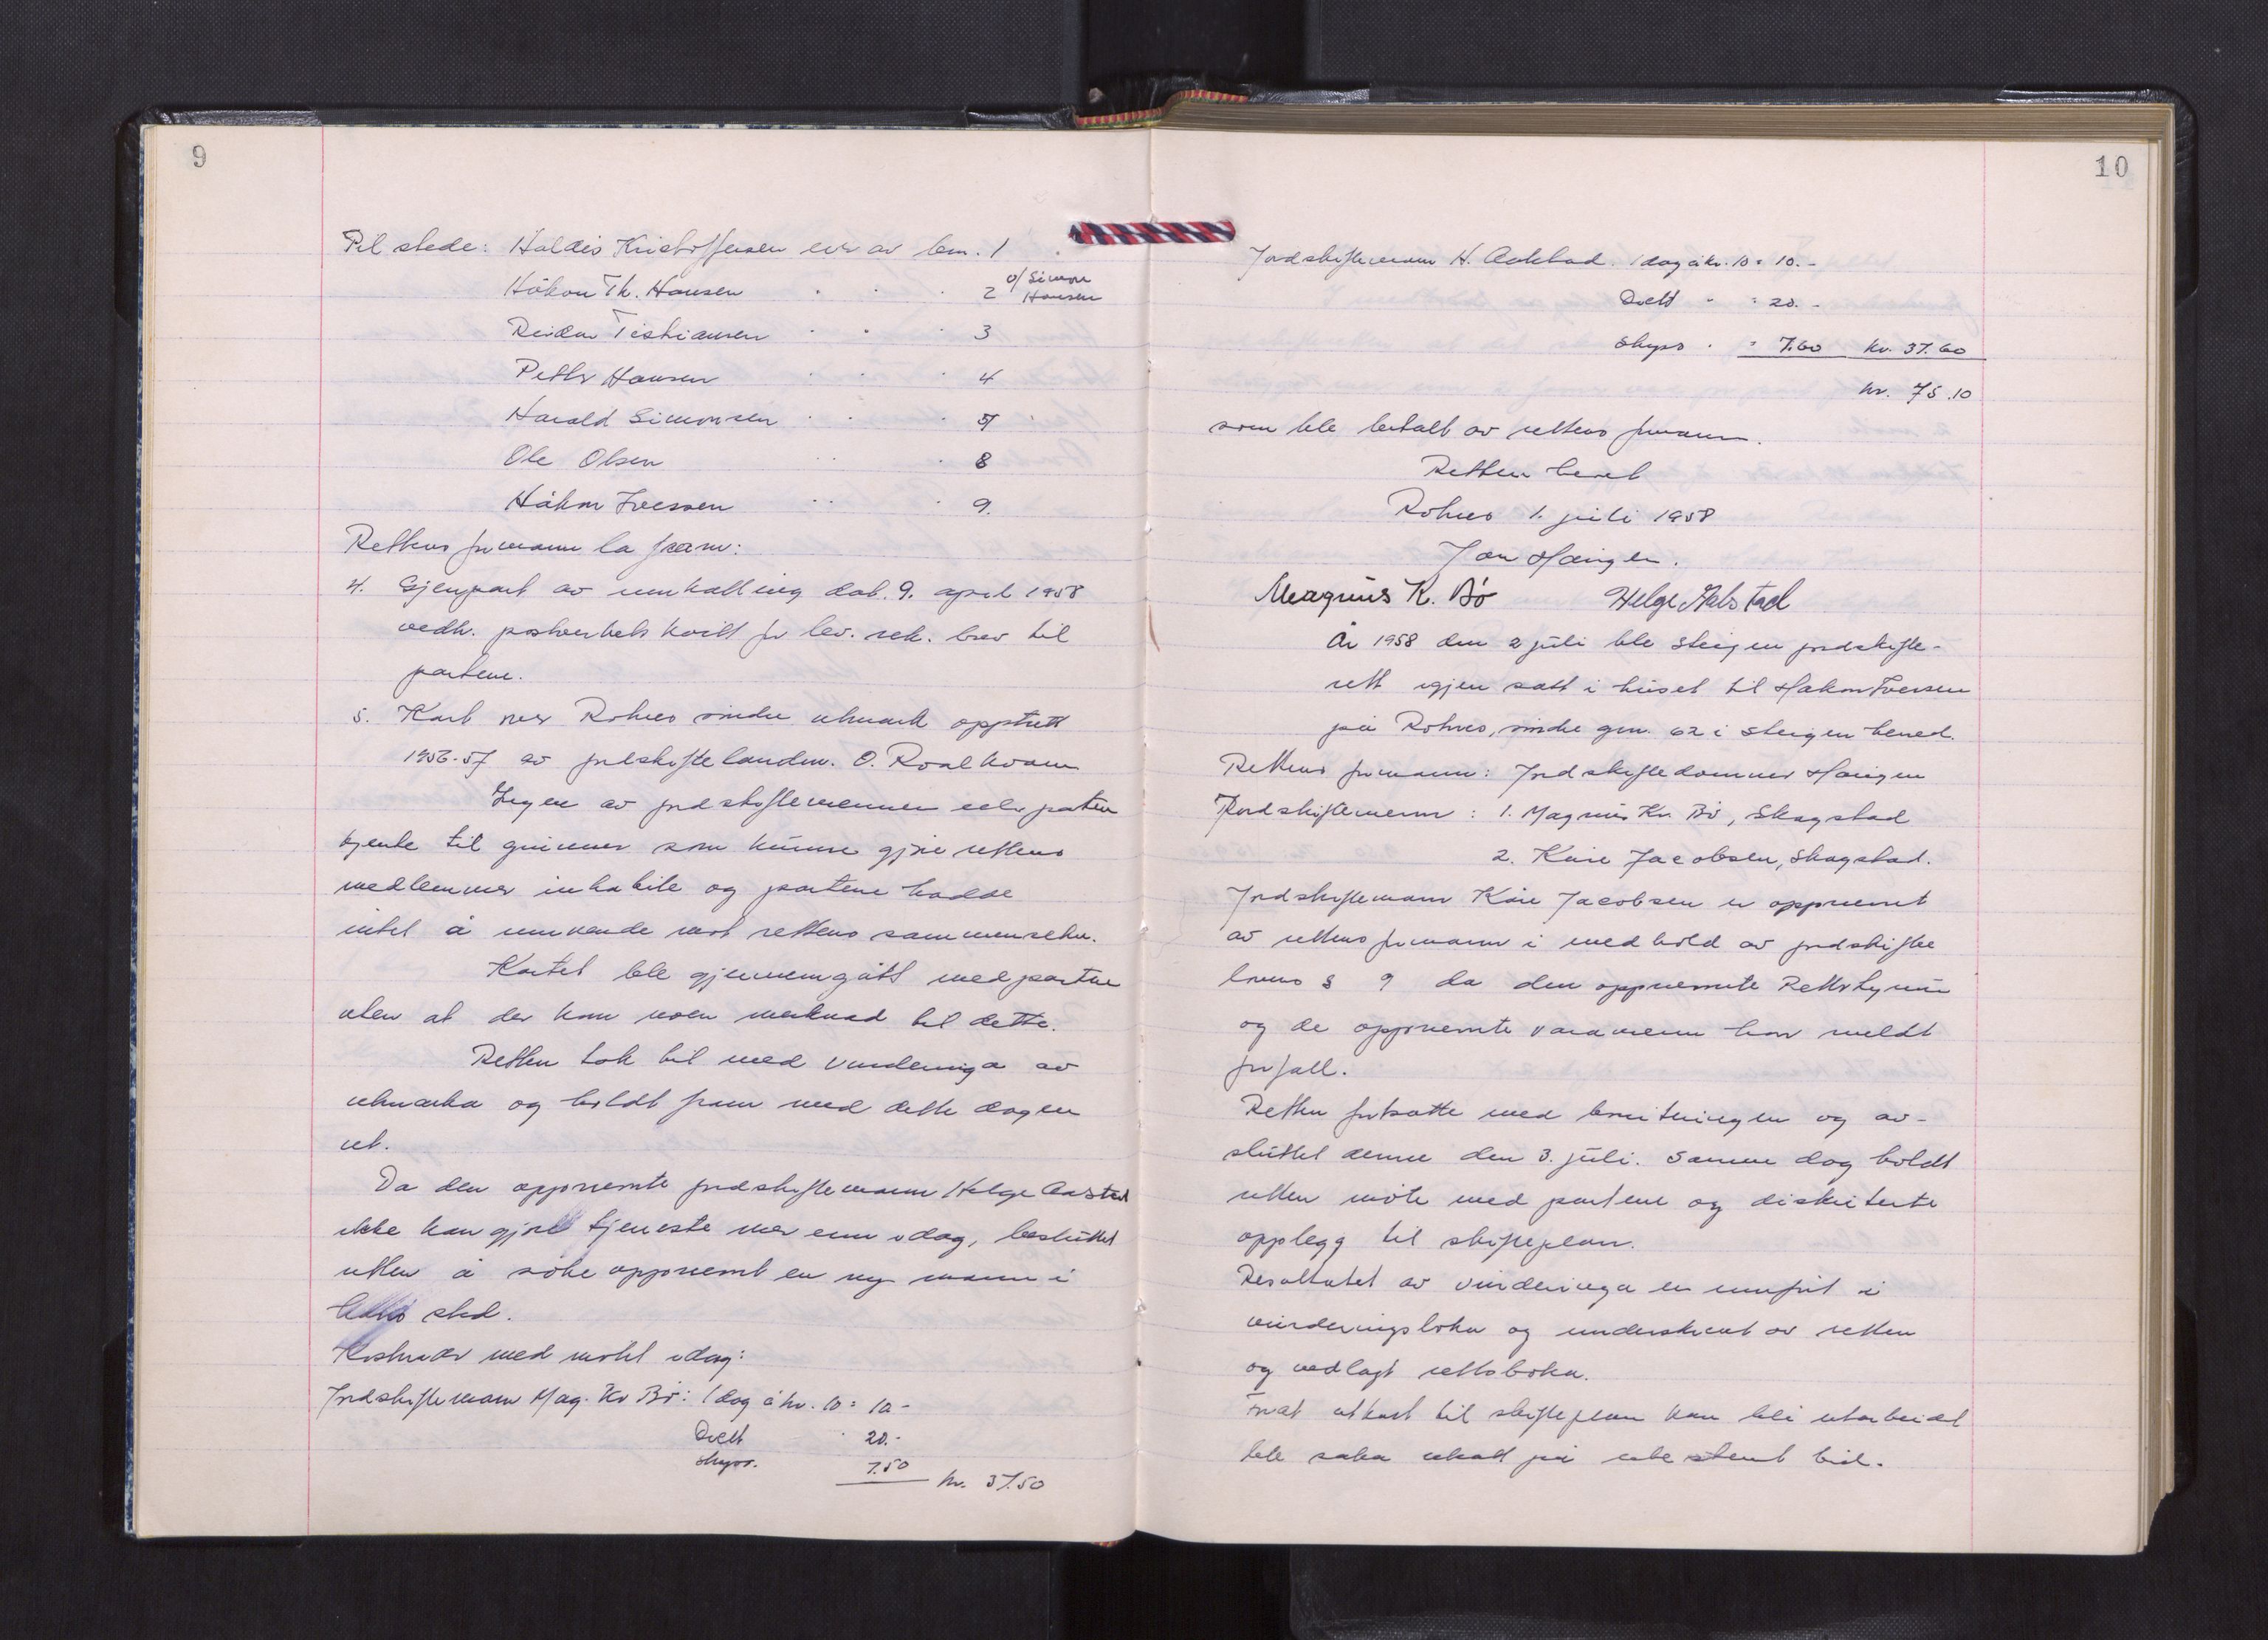 9
Til stede: Haldis Kristoffersen eier av bnr. 1
Håkon Th. Hansen " " " 2 v/ Simon Hansen
Reidar Kristiansen " " " 3
Petter Hansen " " " 4
Harald Simonsen " " " 5
Ole Olsen " " " 8
Håkon Iversen " " " 9.
Rettens formann la fram:
4. Gjenpart av innkalling dat. 9. april 1958
vedh. postverkets kvitt for lev. rek. brev til
partene.
5. Kart over Rotnes indre utmark opptatt
1956-57 av jordskiftelandm. O. Roalkvam
Ingen av jordskiftemennene eller partene
kjente til grunner som kunne gjøre rettens
medlemmer inhabile og partene hadde
intet å innvende mot rettens sammensetn.
Kartet ble gjennemgått med partene
uten at der kom noen merknad til dette.
Retten tok til med vurderinga av
utmarka og holdt fram med dette dagen
ut.
Da den oppnemte jordskiftemann Helge Aalstad
ikke kan gjøre tjeneste mer enn idag, besluttet
retten å søke oppnemt en ny mann i
hans sted.
Kostnader med møtet idag:
Jordskiftemann Mag. Kr Bö: 1 dag á kr. 10 = 10.-
Diett " 20.-
skyss. 7.50 kr. 37.50
10
Jordskiftemann H. Aalstad. 1 dag á kr. 10 = 10.-
Diett " = 20.-
Skyss " = 7.60 kr. 37.60
kr. 75.10
som ble betalt av rettens formann.
Retten hevet
Rotnes 1. juli 1958
Jon Haugen.
Magnus K. Bö Helge Aalstad
År 1958 den 2 juli ble Steigen jordskifte-
rett igjen satt i huset til Hakon Iversen
på Rotnes, indre gnr. 62 i Steigen herred.
Rettens formann: Jordskiftedommer Haugen
Jordskiftemenn: 1. Magnus Kr. Bö, Skagstad
2. Kåre Jacobsen, Skagstad.
Jordskiftemann Kåre Jacobsen er oppnemt
av rettens formann i medhold av jordskifte
lovens § 9 da den oppnemte
og de oppnemte varamenn har meldt
forfall.
Retten fortsatte med boniteringen og av-
sluttet denne den 3. juli. Samme dag holdt
retten møte med partene og diskuterte
opplegg til skifteplan.
Resultatet av vurderinga er innført i
vurderingsboka og underskrevet av retten
og vedlagt rettsboka.
Forat utkast til skifteplan kan bli utarbeidet
ble saka utsatt på ubestemt tid.